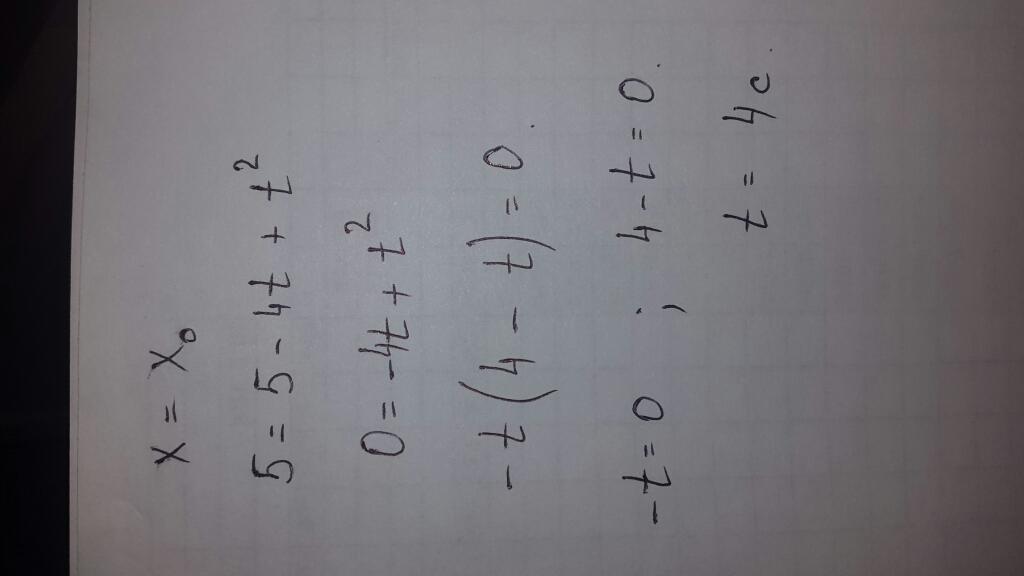 x = x₀
5 = 5 - 4t + t²
0 = -4t + t²
-t(4 - t) = 0.
-t = 0 ; 4 - t = 0.
t = 4c.